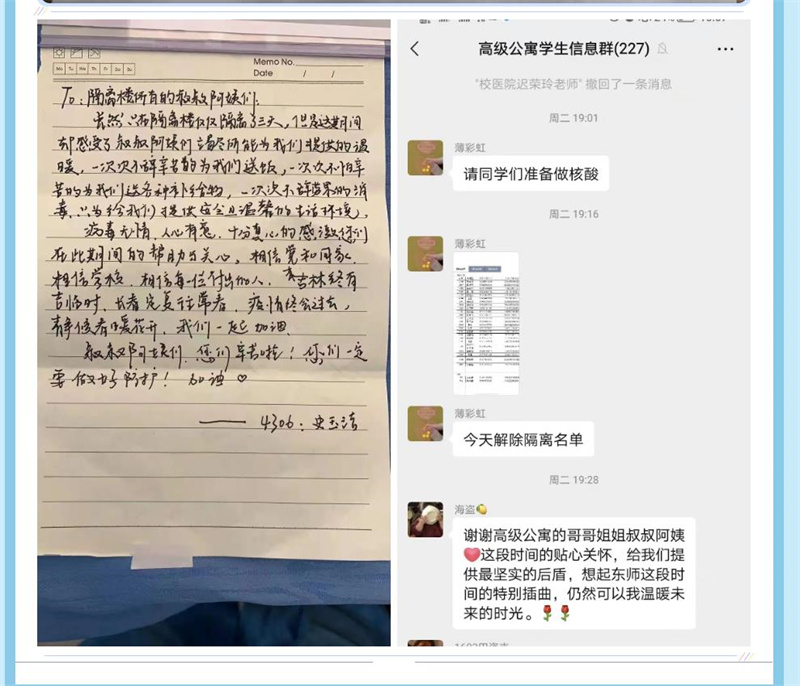 Memo No.
Mo Tu We Th Fr Sa Su
Date / /
To：隔离楼所有的叔叔阿姨们：
虽然只在隔离楼仅仅隔离了三天，但是这期间
却感受了叔叔阿姨们竭尽所能为我们提供的温
暖，一次次不辞辛苦的为我们送饭，一次次不怕辛
苦的为我们送各种补给物，一次次不辞劳累的消
毒，只为给我们提供安全且温馨的生活环境。
病毒无情，人心有意，十分真心的感激你们
在此期间的帮助与关心，相信党和国家，
相信学校，相信每一位付出的人，吉林终有
吉临时，长春完美往常春，疫情终会过去，
静候春暖花开，我们一起加油
叔叔阿姨们，您们辛苦啦！您们一定
要做好防护！加油♡
—— 4306：史玉洁
高级公寓学生信息群(227)
"校医院迟荣玲老师" 撤回了一条消息
周二 19:01
薄彩虹
请同学们准备做核酸
周二 19:16
薄彩虹
薄彩虹
今天解除隔离名单
周二 19:28
海盗🍋
谢谢高级公寓的哥哥姐姐叔叔阿姨
❤️这段时间的贴心关怀，给我们提
供最坚实的后盾，想起东师这段时
间的特别插曲，仍然可以我温暖未
来的时光。🌹🌹